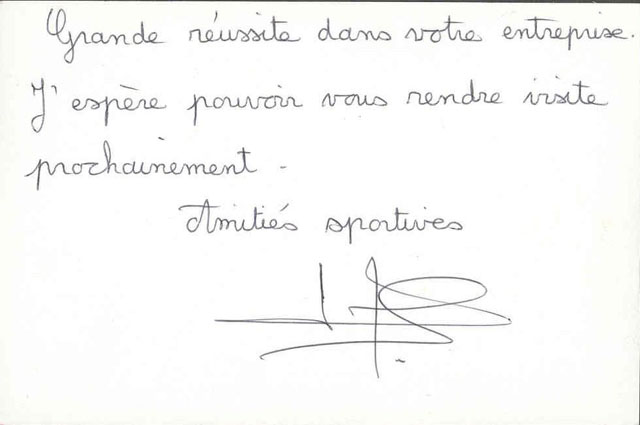 Grande réussite dans votre entreprise.
J'espère pouvoir vous rendre visite
prochainement.
Amitiés sportives